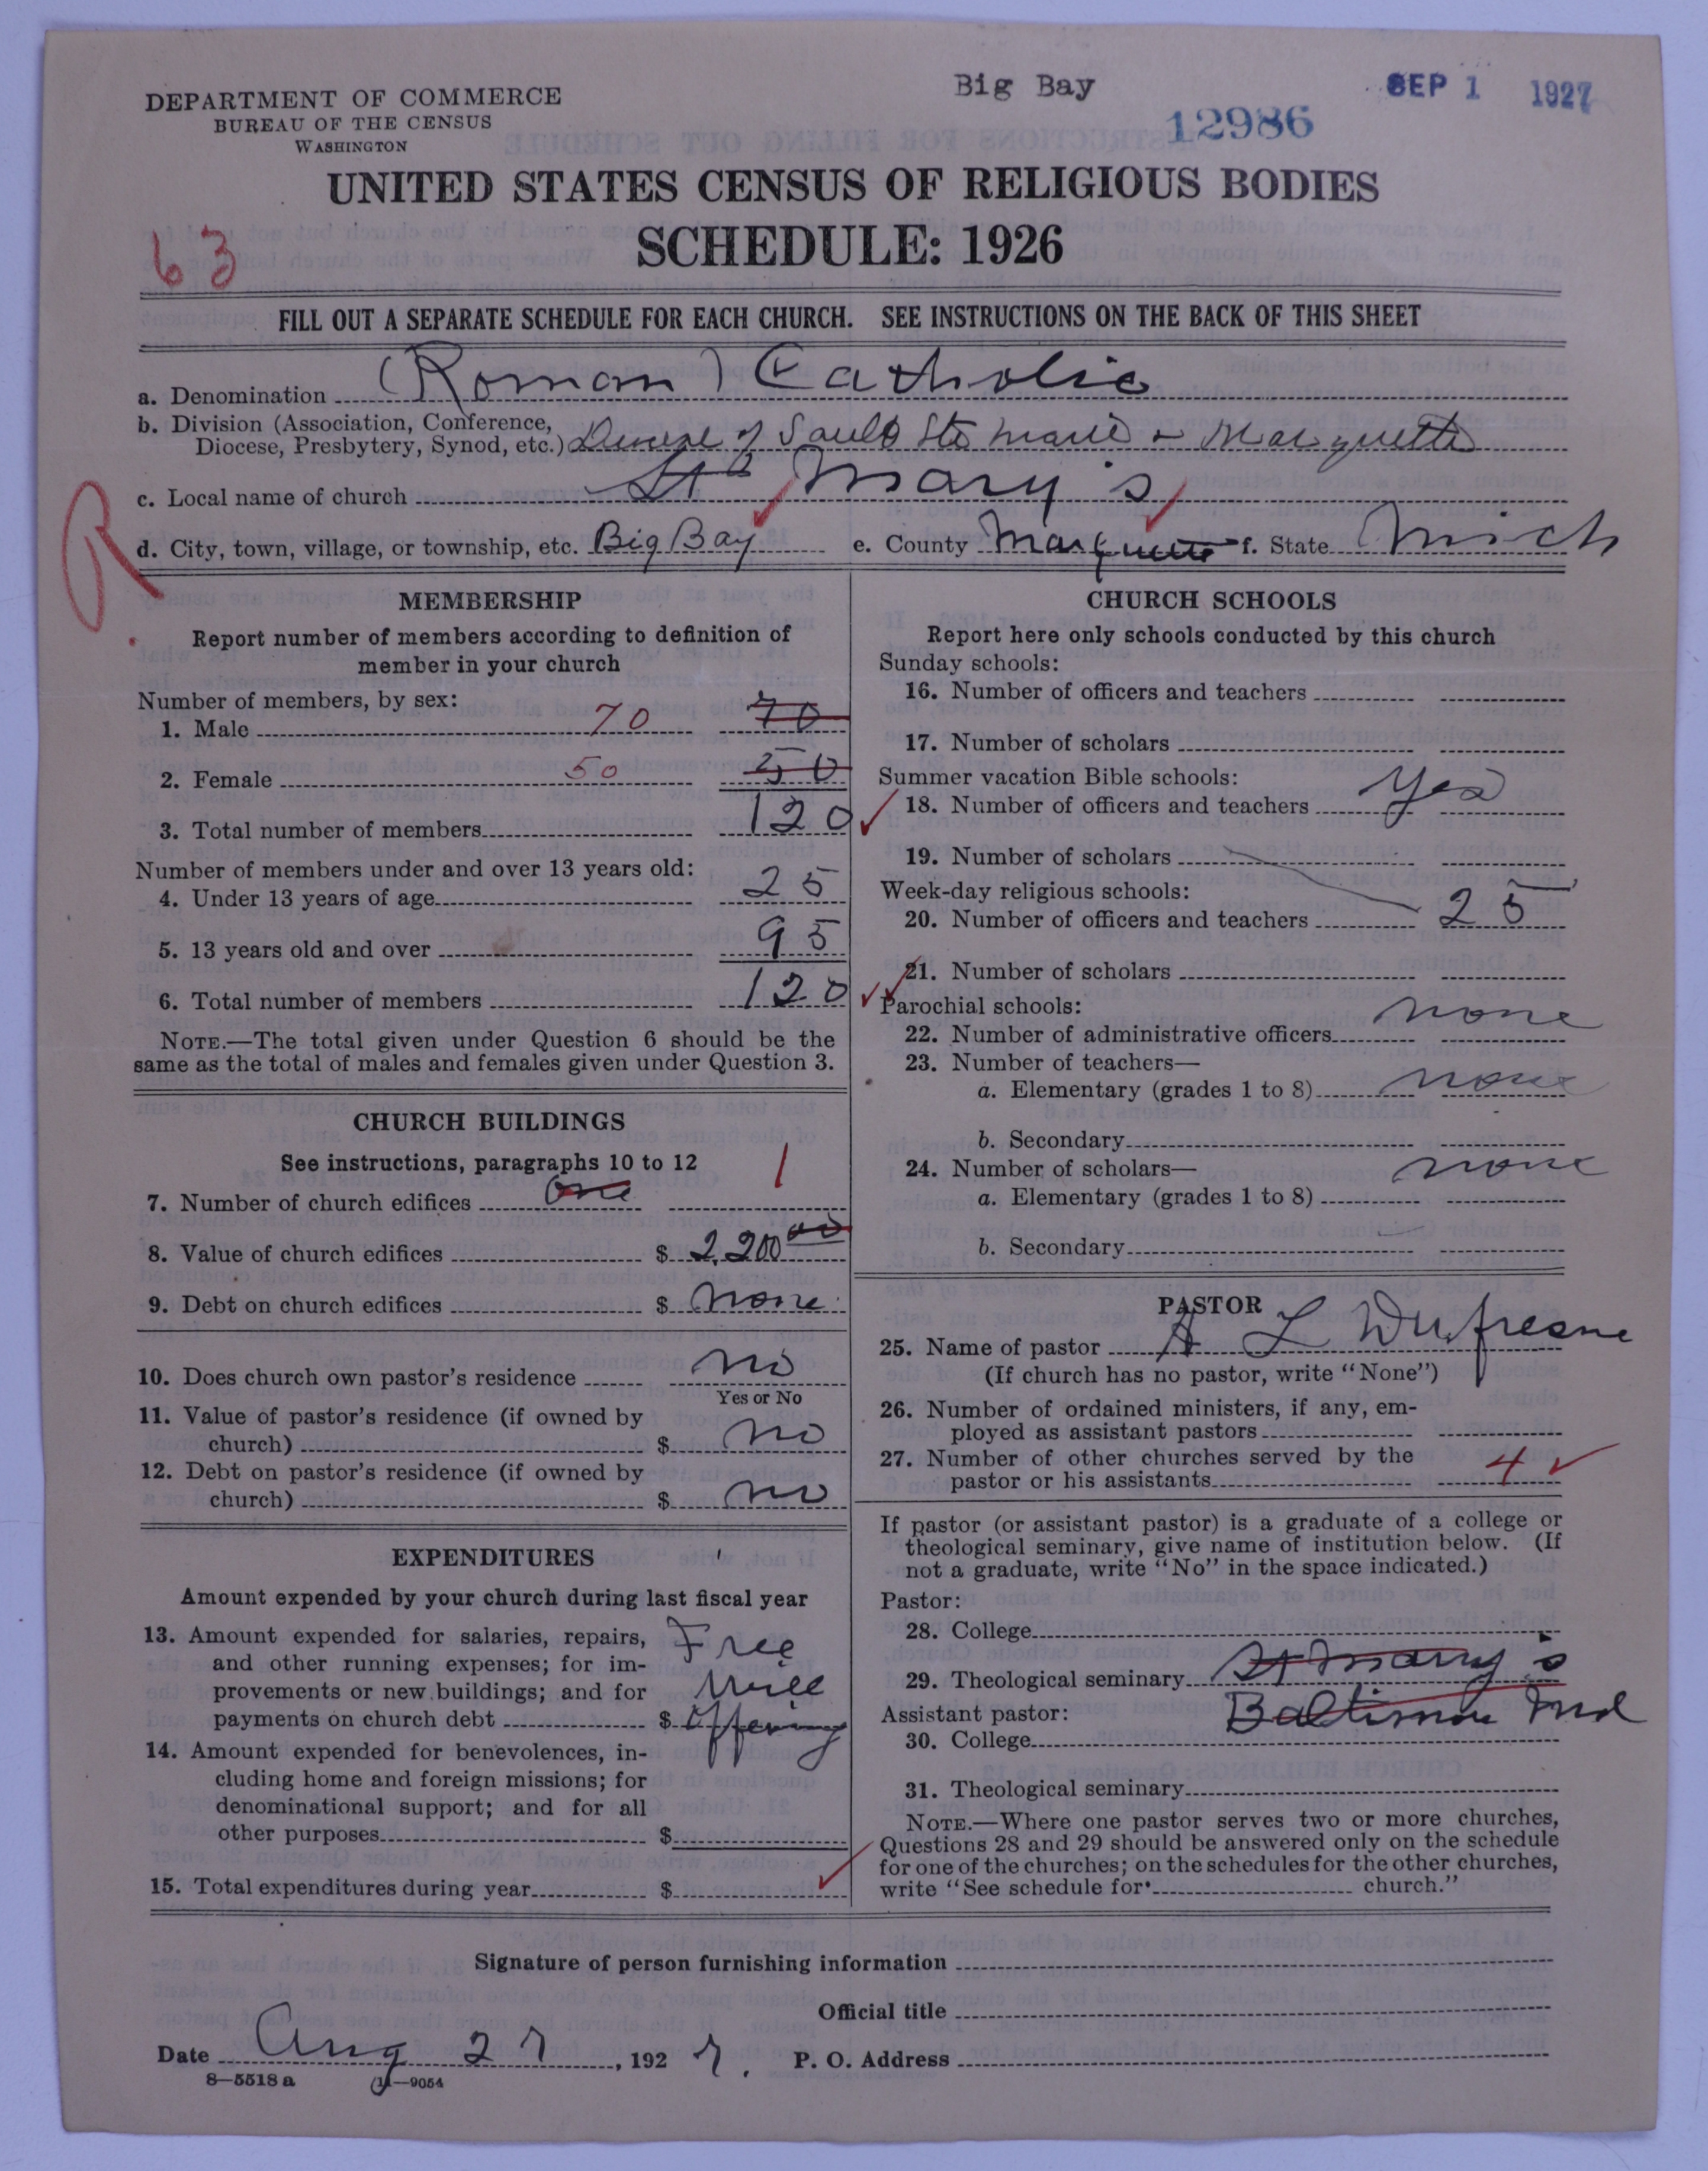 Big Bay
SEP 1 1927
12986
DEPARTMENT OF COMMERCE
BUREAU OF THE CENSUS
WASHINGTON
UNITED STATES CENSUS OF RELIGIOUS BODIES
SCHEDULE: 1926
63
FILL OUT A SEPARATE SCHEDULE FOR EACH CHURCH. SEE INSTRUCTIONS ON THE BACK OF THIS SHEET
a. Denominaton (Roman) Catholic
b. Division (Association, Conference,
Diocese, Presbytery, Synod, etc.) Diocese of Sault Ste Marie & Marquette
c. Local name of church St Mary's
R
d. City, town, village, or township, etc. Big Bay e. County Marquette f. State Mich
MEMBERSHIP
Report number of members according to definition of
member in your church
Number of members, by sex:
1. Male 70 70
2. Female 50 50
3. Total number of members 120
Number of members under and over 13 years old:
4. Under 13 years of age 25
5. 13 years old and over 95
6. Total number of members 120
NOTE.—The total given under Question 6 should be the
same as the total of males and females given under Question 3.
CHURCH BUILDINGS
See instructions, paragraphs 10 to 12
7. Number of church edifices One 1
8. Value of church edifices $ 2,200 00
9. Debt on church edifices $ None
10. Does church own pastor's residence No
Yes or No
11. Value of pastor's residence (if owned by
church) $ No
12. Debt on pastor's residence (if owned by
church) $ No
EXPENDITURES
Amount expended by your church during last fiscal year
13. Amount expended for salaries, repairs,
and other running expenses; for im-
provements or new buildings; and for
payments on church debt $ Free Will Offering
14. Amount expended for benevolences, in-
cluding home and foreign missions; for
denominational support; and for all
other purposes $
15. Total expenditures during year $
CHURCH SCHOOLS
Report here only schools conducted by this church
Sunday schools:
16. Number of officers and teachers
17. Number of scholars
Summer vacation Bible schools:
18. Number of officers and teachers Yes
19. Number of scholars
Week-day religious schools:
20. Number of officers and teachers 25
21. Number of scholars
Parochial schools:
22. Number of administrative officers none
23. Number of teachers—
a. Elementary (grades 1 to 8) none
b. Secondary
24. Number of scholars— none
a. Elementary (grades 1 to 8)
b. Secondary
PASTOR
25. Name of pastor A L Dufresne
(If church has no pastor, write "None")
26. Number of ordained ministers, if any, em-
ployed as assistant pastors
27. Number of other churches served by the
pastor or his assistants 4
If pastor (or assistant pastor) is a graduate of a college or
theological seminary, give name of institution below. (If
not a graduate, write "No" in the space indicated.)
Pastor:
28. College
29. Theological seminary St Mary's
Assistant pastor: Baltimore Md
30. College
31. Theological seminary
NOTE.—Where one pastor serves two or more churches,
Questions 28 and 29 should be answered only on the schedule
for one of the churches; on the schedules for the other churches,
write "See schedule for church."
Signature of person furnishing information
Official title
Date Aug 27, 1927. P. O. Address
8—5518 a 11—9054